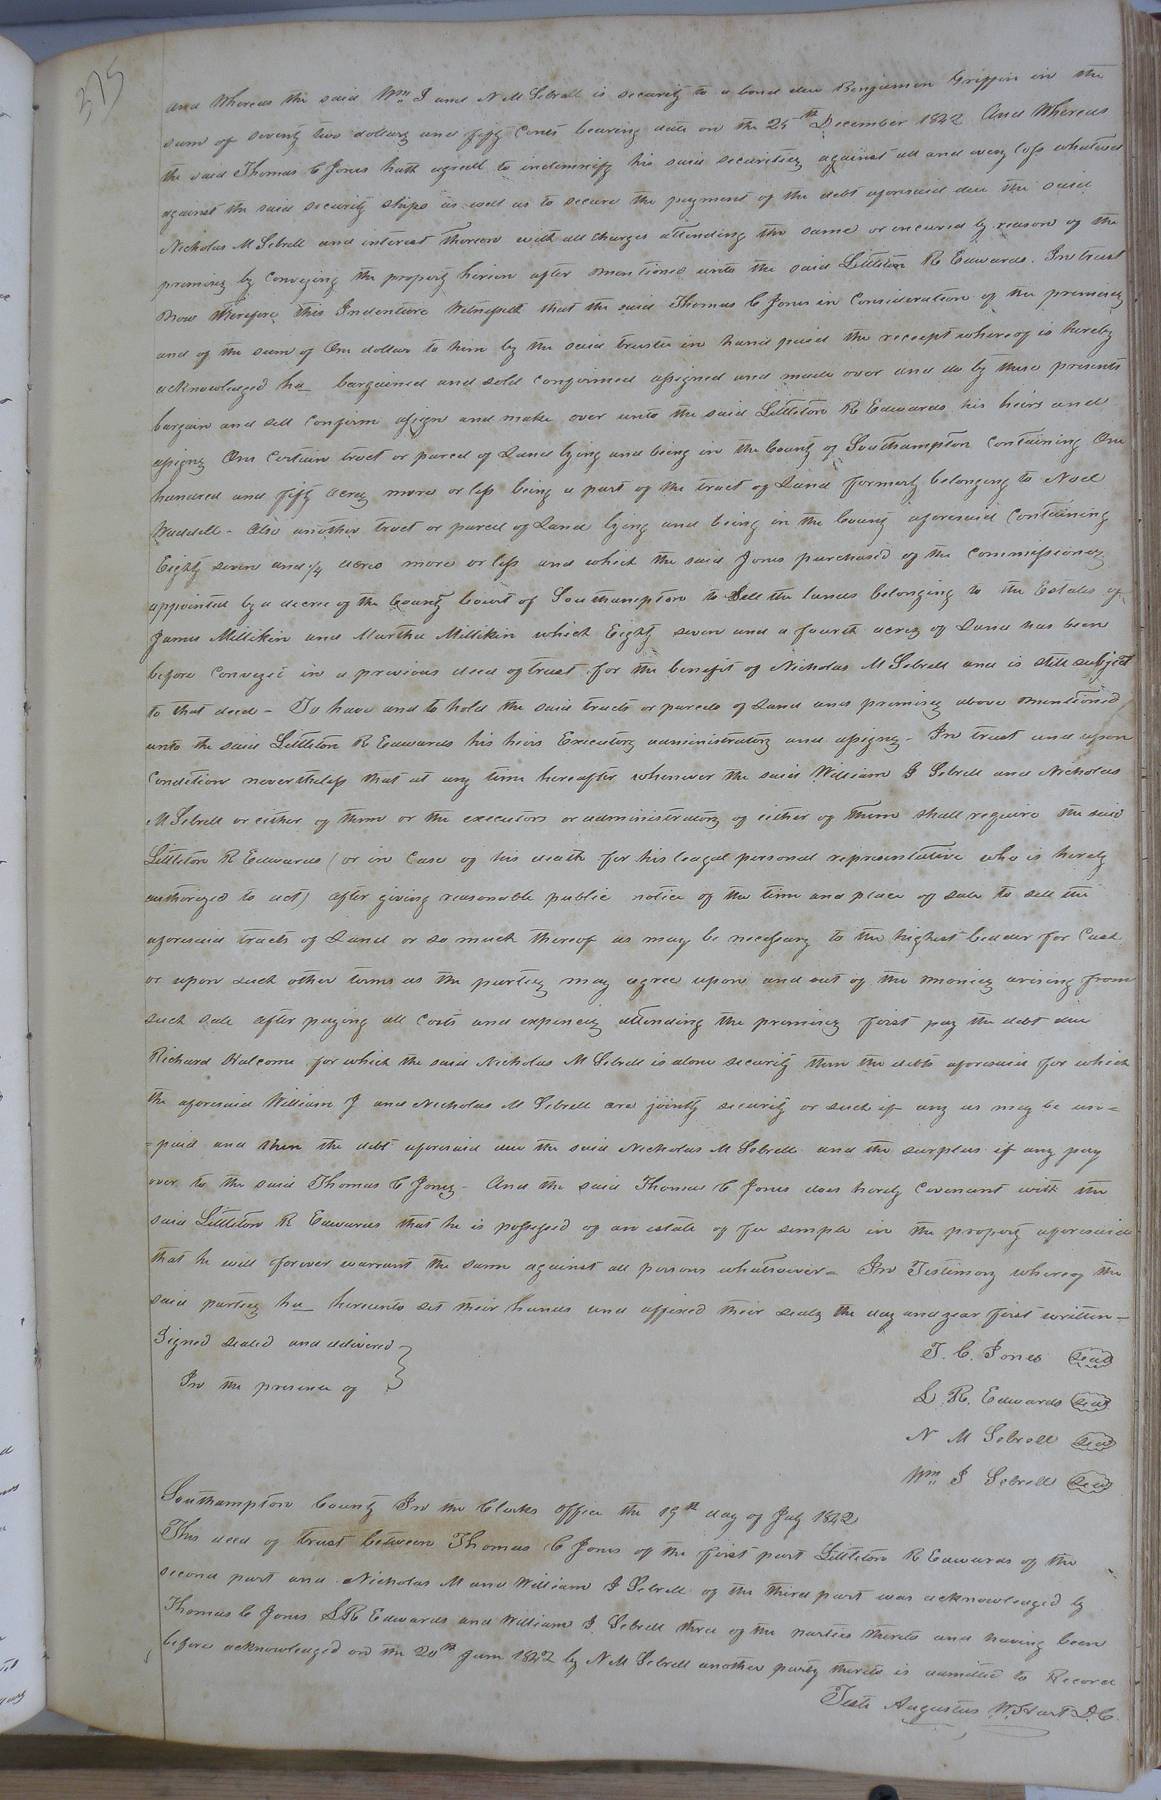 375
and Whereas the said Wm J and N M Sebrell is security to a bond due Benjamin Griffin in the
sum of seventy two dollars and fifty Cents bearing date on the 25th December 1842 And Whereas
the said Thomas C Jones hath agreed to indemnify his said securities against all and every loss whatever
against the said security ships as well as to secure the payment of the debt aforesaid due the said
Nicholas M Sebrell and interest thereon with all charges attending the same or incured by reason of the
premises by conveying the property herein after mentioned unto the said Littleton R Edwards. In trust
Now therefore this Indenture Witnesseth that the said Thomas C Jones in Consideration of the premises
and of the sum of One dollar to him by the said trustee in hand paid the receipt whereof is hereby
acknowledged ha_ bargained and sold confirmed assigned and made over and do by these presents
bargain and sell confirm assign and make over unto the said Littleton R Edwards his heirs and
assigns One Certain tract or parcel of Land lying and being in the County of Southampton Containing One
hundred and fifty acres more or less being a part of the tract of Land formerly belonging to Noel
Waddell - Also another tract or parcel of Land lying and being in the County aforesaid Containing
Eighty seven and 1/4 acres more or less and which the said Jones purchased of the Commissioners
appointed by a decree of the County Court of Southampton to Sell the lands belonging to the Estates of
James Millikin and Martha Millikin which Eighty seven and a fourth acres of Land has been
before conveyed in a previous deed of trust for the benefit of Nicholas M Sebrell and is still subject
to that deed - To have and to hold the said tracts or parcels of Land and premises above mentioned
unto the said Littleton R Edwards his heirs Executors administrators and assigns - In trust and upon
Condition nevertheless that at any time hereafter whenever the said William J Sebrell and Nicholas
M Sebrell or either of them or the executors or administrators of either of them shall require the said
Littleton R Edwards (or in Case of his death for his leagal personal representative who is hereby
authorized to act) after giving reasonable public notice of the time and place of sale to sell the
aforesaid tracts of Land or so much thereof as may be necessary to the highest bidder for Cash
or upon such other terms as the parties may agree upon and out of the monies arising from
such sale after paying all Costs and expences attending the premises first pay the debt due
Richard Balcome for which the said Nicholas M Sebrell is alone security then the debts aforesaid for which
the aforesaid William J and Nicholas M Sebrell are jointly security or such if any as may be un=
=paid and then the debt aforesaid due the said Nicholas M Sebrell and the surplus if any pay
over to the said Thomas C Jones - And the said Thomas C Jones does hereby Covenant with the
said Littleton R Edwards that he is possessed of an estate of fee simple in the property aforesaid
that he will forever warrant the same against all persons whatsoever - In Testimony whereof the
said parties ha_ hereunto set their hands and affixed their seals the day and year first written -
Signed sealed and delivered
In the presence of
T. C. Jones Seal
L. R. Edwards Seal
N M Sebrell Seal
Wm J Sebrell Seal
Southampton County In the Clerks office the 19th day of July 1842
This deed of trust between Thomas C Jones of the first part Littleton R Edwards of the
second part and Nicholas M and William J Sebrell of the third part was acknowledged by
Thomas C Jones L R Edwards and William J. Sebrell three of the parties thereto and having been
before acknowledged on the 20th June 1842 by N M Sebrell another party thereto is admitted to Record
Teste Augustus W. Hart D.C.